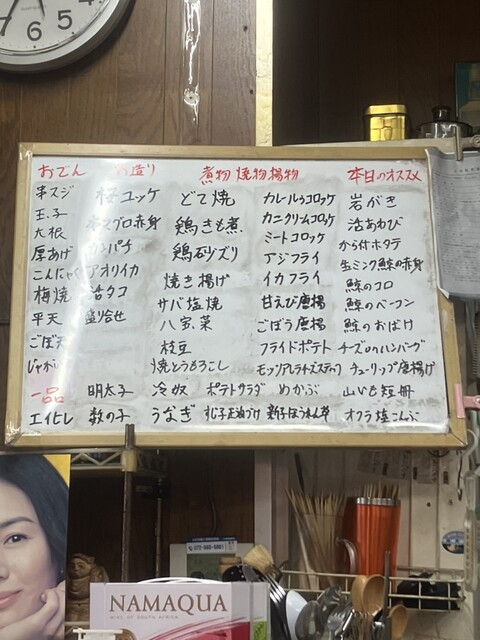 おでん
串スジ
玉子
大根
厚あげ
こんにゃく
梅焼
平天
ごぼ天
じゃがいも
造り
桜ユッケ
本マグロ赤身
カンパチ
アオリイカ
活タコ
盛り合せ
煮物 焼物 揚物
どて焼
鶏きも煮
鶏砂ズリ
焼き揚げ
サバ塩焼
八宝菜
枝豆
焼とうもろこし
カレールゥコロッケ
カニクリームコロッケ
ミートコロッケ
アジフライ
イカフライ
甘えび唐揚
ごぼう唐揚
フライドポテト
モッツアレラチーズスティック
本日のオススメ
岩がき
活あわび
から付ホタテ
生ミンク鯨の赤身
鯨のコロ
鯨のベーコン
鯨のおばけ
チーズinハンバーグ
チューリップ唐揚げ
山いも短冊
オクラ塩こんぶ
一品
エイヒレ
明太子
数の子
冷奴
うなぎ
ポテトサラダ
すじ子正油づけ
めかぶ
NAMAQUA
WINE OF SOUTH AFRICA
12
4
5
6
7